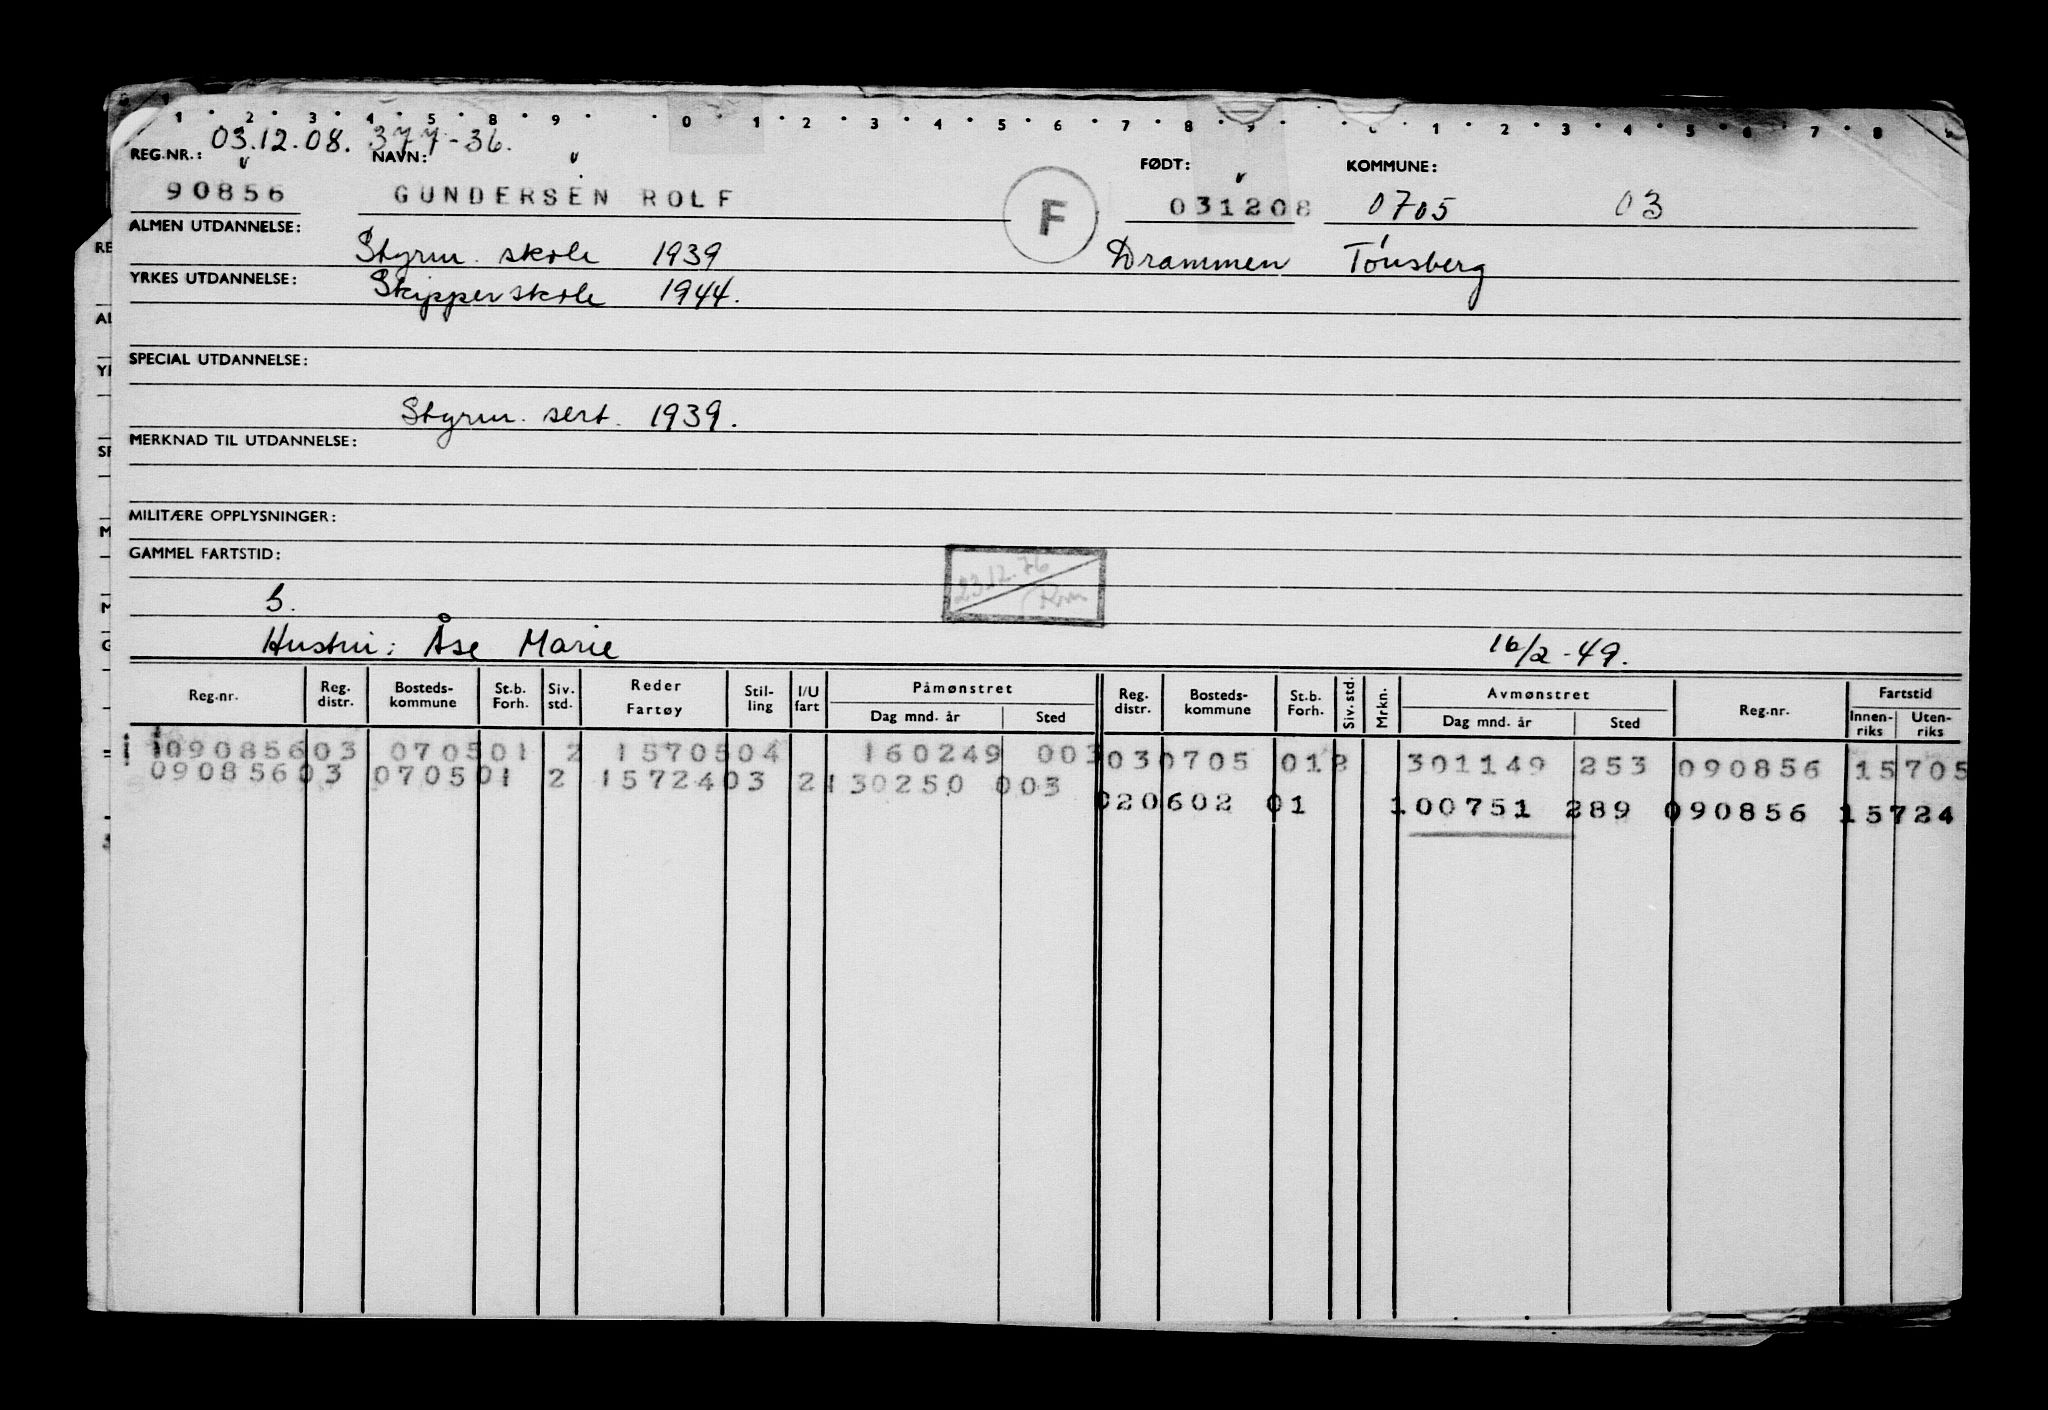 1 2 3 4 5 8 9 0 1 2 3 4 5 6 7 8 9 1 2 3 4 5 6 7 8
03.12.08. 377-36.
REG.NR.: NAVN: FØDT: KOMMUNE:
90856 GUNDERSEN ROLF F 031208 0705 03
ALMEN UTDANNELSE:
Styrm. skole 1939 Drammen Tønsberg
YRKES UTDANNELSE:
Skipperskole 1944.
SPECIAL UTDANNELSE:
Styrm. sert. 1939.
MERKNAD TIL UTDANNELSE:
MILITÆRE OPPLYSNINGER:
GAMMEL FARTSTID:
23.12.76
Hustru: Åse Marie 16/2-49.
Reg.nr. Reg. distr. Bosteds-kommune St.b. Forh. Siv. std. Reder Fartøy Stil-ling I/U fart Påmønstret Dag mnd. år Sted Reg. distr. Bosteds-kommune St.b. Forh. Siv. std. Mrkn. Avmønstret Dag mnd. år Sted Reg.nr. Fartstid Innen-riks Uten-riks
09085603 070501 2 1570504 160249 003 030705 012 301149 253 090856 15705
09085603 070501 2 1572403 2 130250 003
020602 01 100751 289 090856 15724